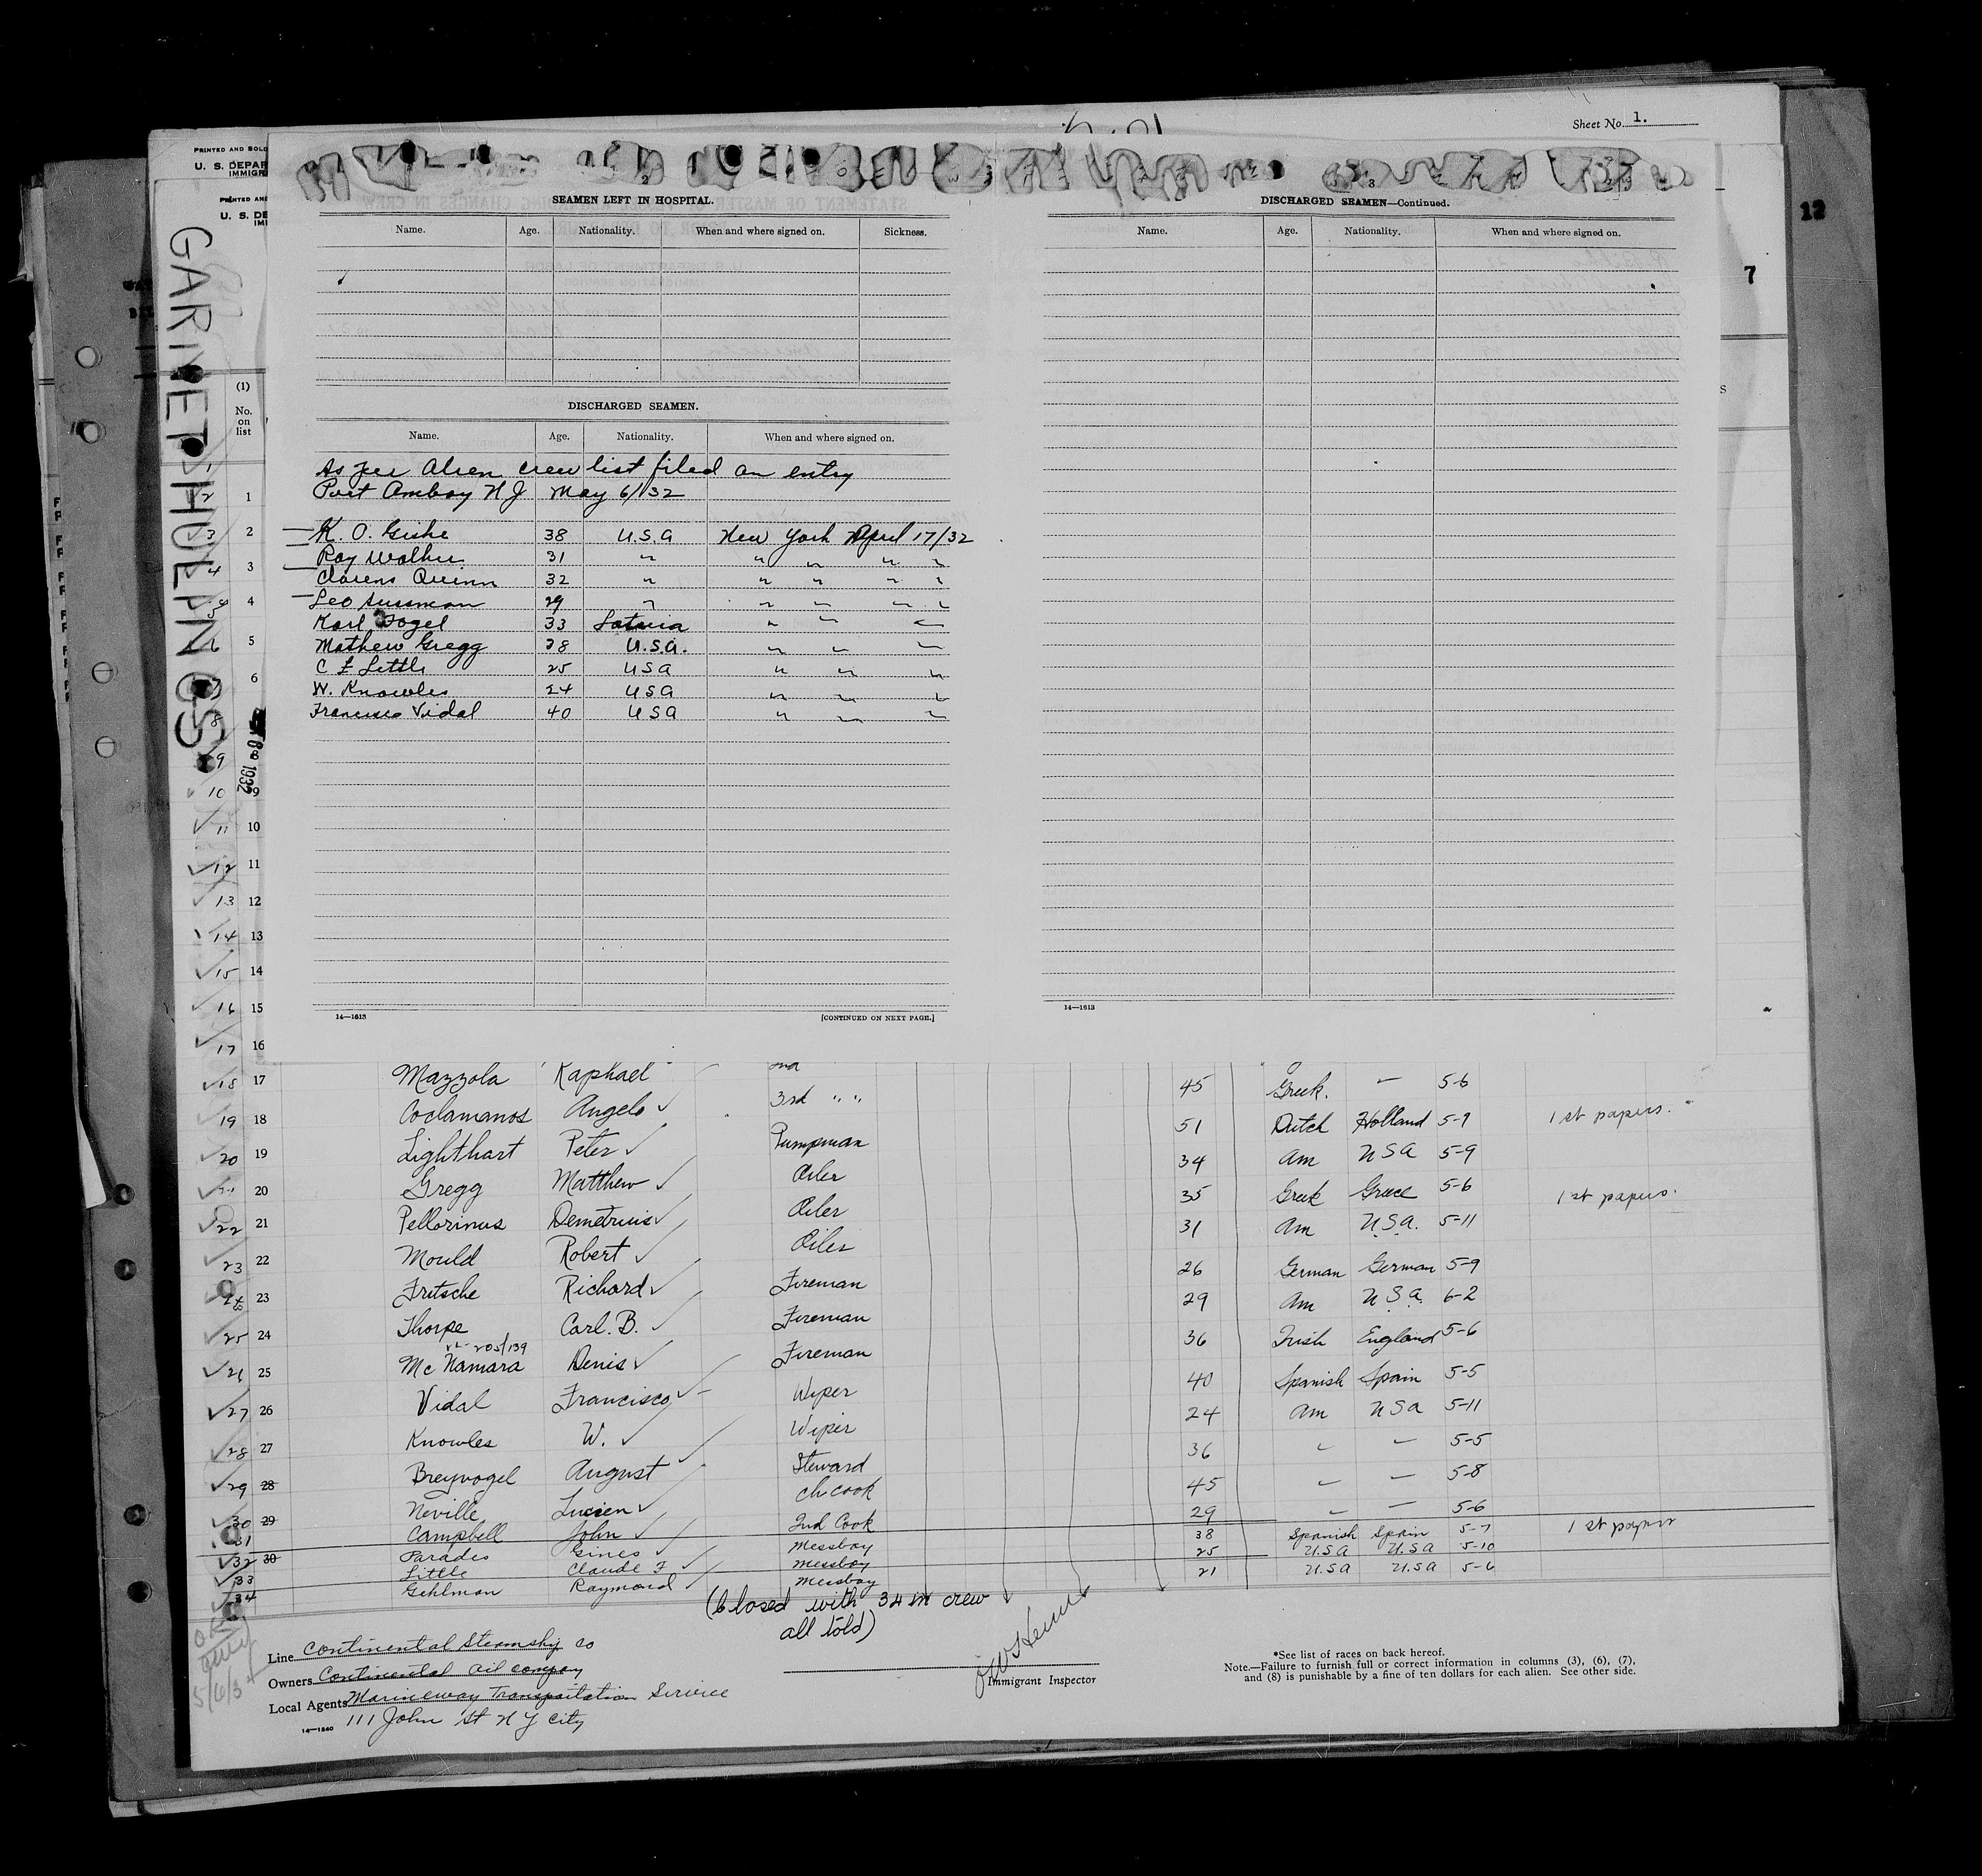 Sheet No. 1.
PRINTED AND SOLD
U. S. DEPAR
IMMIGR
PRINTED AND
U. S. DE
IMI
12
7
GARNET HULINGS
(1)
No. on list
SEAMEN LEFT IN HOSPITAL.
Name. Age. Nationality. When and where signed on. Sickness.
DISCHARGED SEAMEN.
Name. Age. Nationality. When and where signed on.
As per Alien crew list filed on entry
Port Amboy N J May 6/32
K. O. Gishe 38 U.S.A New York April 17/32
Ray Walker 31 " " " " "
Clarens Quinn 32 " " " " "
Leo Sussman 29 " " " " "
Karl Fogel 33 Latvia " " "
Mathew Gregg 38 U.S.A. " " "
C F Little 25 USA " " "
W. Knowles 24 USA " " "
Francisco Vidal 40 USA " " "
14—1613 [CONTINUED ON NEXT PAGE.]
DISCHARGED SEAMEN—Continued.
Name. Age. Nationality. When and where signed on.
14—1613
2 1
3 2
4 3
5 4
6 5
7 6
8
9 8 1932
10 9
11 10
12 11
13 12
14 13
15 14
16 15
17 16
18 17 Mazzola Raphael 2nd
19 18 Coclamanos Angelo 3rd " " 45 Greek. — 5-6
20 19 Lighthart Peter Pumpman 51 Dutch Holland 5-9 1st papers.
20 Gregg Matthew Oiler 34 Am USA 5-9
22 21 Pellorinus Demetrius Oiler 35 Greek Greece 5-6 1st papers.
23 22 Mould Robert Oiler 31 Am U.S.A. 5-11
24 23 Fritsche Richard Fireman 26 German German 5-9
25 24 Thorpe Carl. B. Fireman 29 Am U.S.A. 6-2
205/139
26 25 McNamara Denis Fireman 36 Irish England 5-6
27 26 Vidal Francisco Wiper 40 Spanish Spain 5-5
28 27 Knowles W. Wiper 24 Am USA 5-11
29 28 Breyvogel August Steward 36 " — 5-5
30 29 Neville Lucien Ch Cook 45 — — 5-8
31 Campbell John 2nd Cook 29 — — 5-6
32 30 Parades Gines Messboy 38 Spanish Spain 5-7 1st paper
33 Little Claude F Messboy 25 U.S.A U.S.A 5-10
34 Gehlman Raymond Messboy 21 U.S.A U.S.A 5-6
(Closed with 34 in crew
all told)
Line Continental Steamship Co
Owners Continental Oil Company
Local Agents Marineway Transportation Service
111 John St N Y City
14—1240
Immigrant Inspector
*See list of races on back hereof.
Note.—Failure to furnish full or correct information in columns (3), (6), (7),
and (8) is punishable by a fine of ten dollars for each alien. See other side.